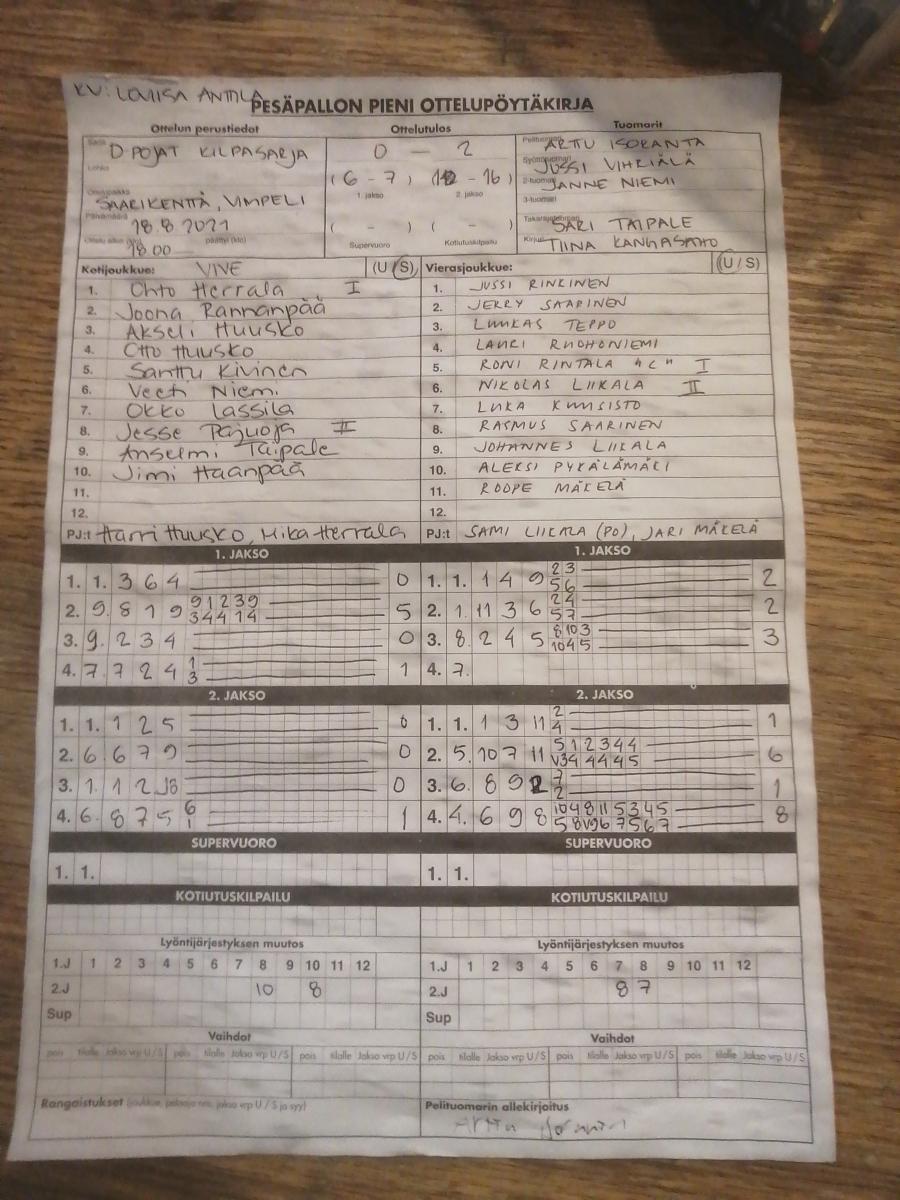 KV: LOVIISA ANTTILA
PESÄPALLON PIENI OTTELUPÖYTÄKIRJA
Ottelun perustiedot Ottelutulos Tuomarit
Sarja D-POJAT KILPASARJA 0 — 2 Pelituomari ARTTU ISORANTA
Lohko (6 - 7) (12 - 16) Syöttötuomari JUSSI VIHRIÄLÄ
1. jakso 2. jakso 2-tuomari JANNE NIEMI
Ottelupaikka SAARIKENTTÄ, VIMPELI 3-tuomari
Päivämäärä 18.8 2021 ( - ) ( - ) Takarajatuomari SARI TAIPALE
Ottelu alkoi (klo) 18.00 päättyi (klo) Supervuoro Kotiutuskilpailu Kirjuri TIINA KANGASAHO
Kotijoukkue: VIVE (U/S) Vierasjoukkue: (U/S)
1. Ohto Herrala I 1. JUSSI RINKINEN
2. Joona Rannanpää 2. JERRY SAARINEN
3. Akseli Huusko 3. LUUKAS TEPPO
4. Otto Huusko 4. LAURI RUOHONIEMI
5. Santtu Kivinen 5. RONI RINTALA "C" I
6. Veeti Niemi 6. NIKOLAS LIIKALA II
7. Okko Lassila 7. LUKA KUUSISTO
8. Jesse Pajuoja II 8. RASMUS SAARINEN
9. Anselmi Taipale 9. JOHANNES LIIKALA
10. Jimi Haanpää 10. ALEKSI PYKÄLÄMÄKI
11. 11. ROOPE MÄKELÄ
12. 12.
PJ:t Harri Huusko, Mika Herrala PJ:t SAMI LIIKALA (PO), JARI MÄKELÄ
1. JAKSO 1. JAKSO
1. 1. 3 6 4 0 1. 1. 1 4 9 2 3 2
5 6
2. 9. 8 7 9 9 1 2 3 9 5 2. 1. 11 3 6 2 4 2
3 4 4 1 4 5 7
3. 9. 2 3 4 0 3. 8. 2 4 5 8 10 3 3
10 4 5
4. 7. 7 2 4 1 1 4. 7.
3
2. JAKSO 2. JAKSO
1. 1. 1 2 5 0 1. 1. 1 3 11 2 1
4
2. 6. 6 7 9 0 2. 5. 10 7 11 5 1 2 3 4 4 6
V3 4 4 4 4 5
3. 1. 1 2 0 3. 6. 8 9 2 7 1
2
4. 6. 8 7 5 6 1 4. 4. 6 9 8 10 4 8 11 5 3 4 5 8
1 5 8 V9 6 7 5 6 7
SUPERVUORO SUPERVUORO
1. 1. 1. 1.
KOTIUTUSKILPAILU KOTIUTUSKILPAILU
Lyöntijärjestyksen muutos Lyöntijärjestyksen muutos
1.J 1 2 3 4 5 6 7 8 9 10 11 12 1.J 1 2 3 4 5 6 7 8 9 10 11 12
2.J 10 8 2.J 8 7
Sup Sup
Vaihdot Vaihdot
pois tilalle Jakso vrp U/S pois tilalle Jakso vrp U/S pois tilalle Jakso vrp U/S pois tilalle Jakso vrp U/S pois tilalle Jakso vrp U/S pois tilalle Jakso vrp U/S
Rangaistukset (joukkue, pelaaja nro, jakso vrp U/S ja syy) Pelituomarin allekirjoitus